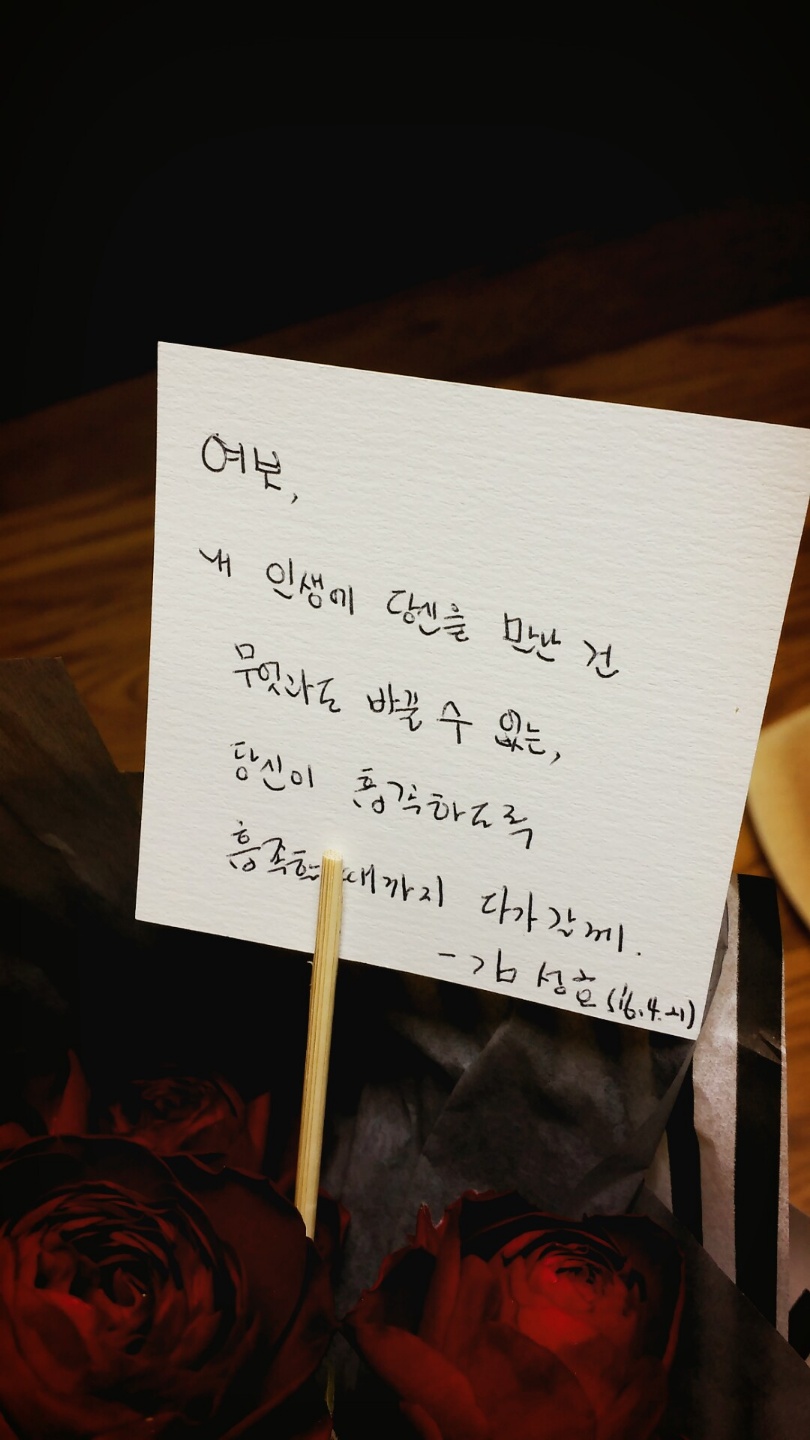 여봇,
내 인생에 당신을 만난 건
무엇과도 바꿀 수 없는,
당신이 흡족하도록
흡족할 때까지 다가갈께.
- 김성호 ('16.4.21)